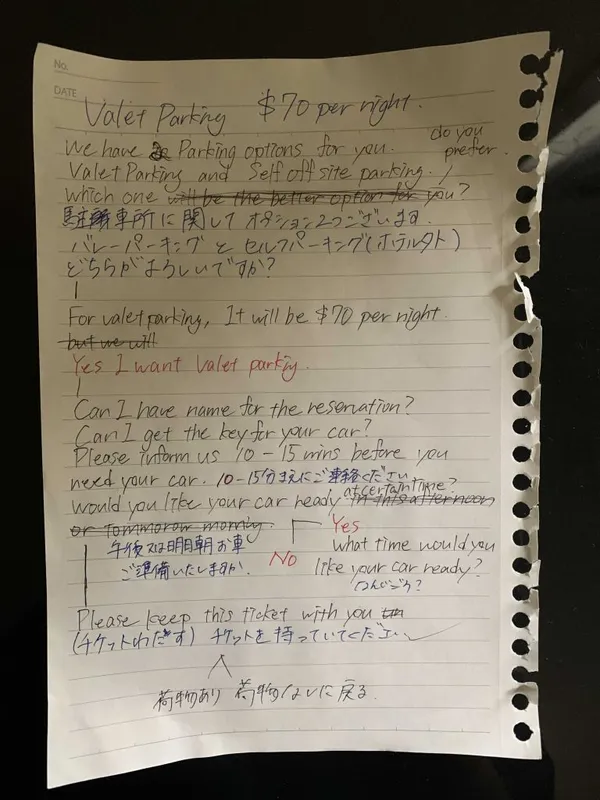 No.
DATE
Valet Parking $70 per night.
We have Parking options for you.
do you prefer
Valet Parking and Self off site parking.
which one will be the better option for you?
駐輪車所に関して オプション2つございます.
バレーパーキング と セルフパーキング(ホテル外)
どちらがよろしいですか?
For valet parking, It will be $70 per night.
but we will
Yes I want Valet parkig.
Can I have name for the reservation?
Can I get the key for your car?
Please inform us 10-15 mins before you
need your car. 10-15分まえにご連絡ください
at certain time?
would you like your car ready in this afternoon
or Tommorow mornig.
Yes
午後又は明日朝 お車
ご準備いたしますか.
No
what time would you
like your car ready?
なんじごろ?
Please keep this ticket with you
(チケットわたす) チケットを持っていてください
荷物あり 荷物なしに戻る